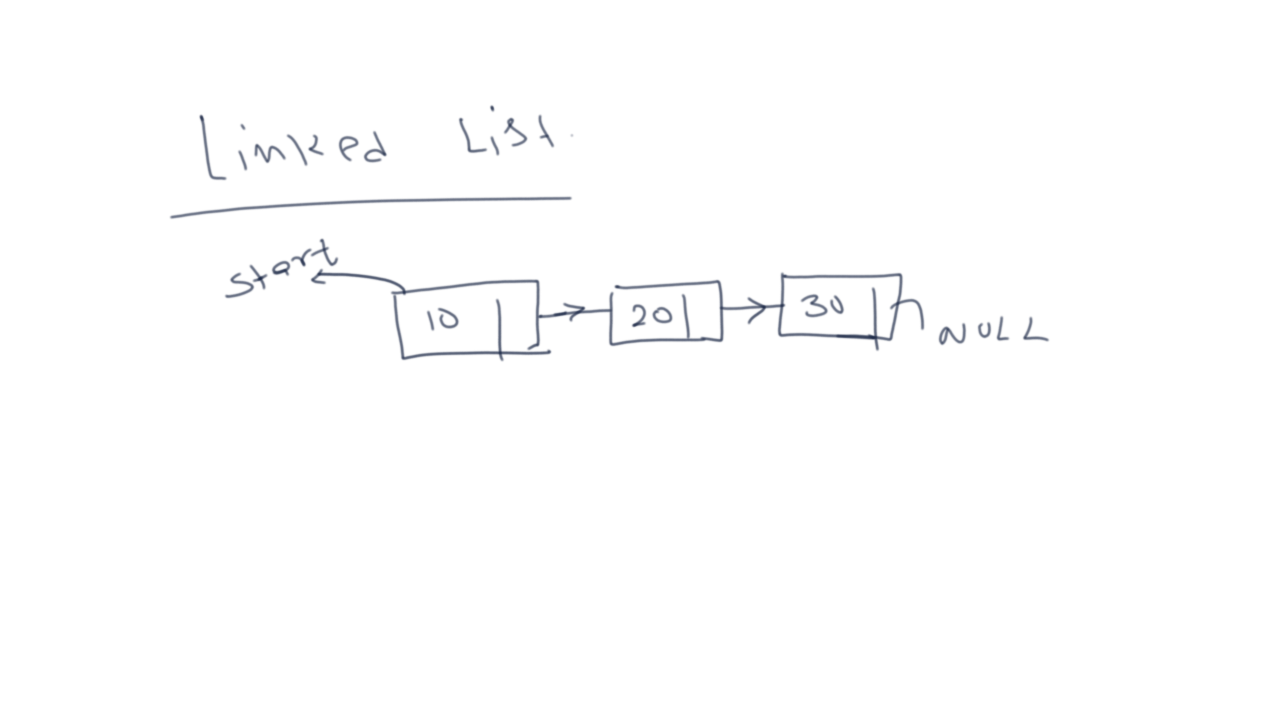 Linked List
start
10 20 30 NULL